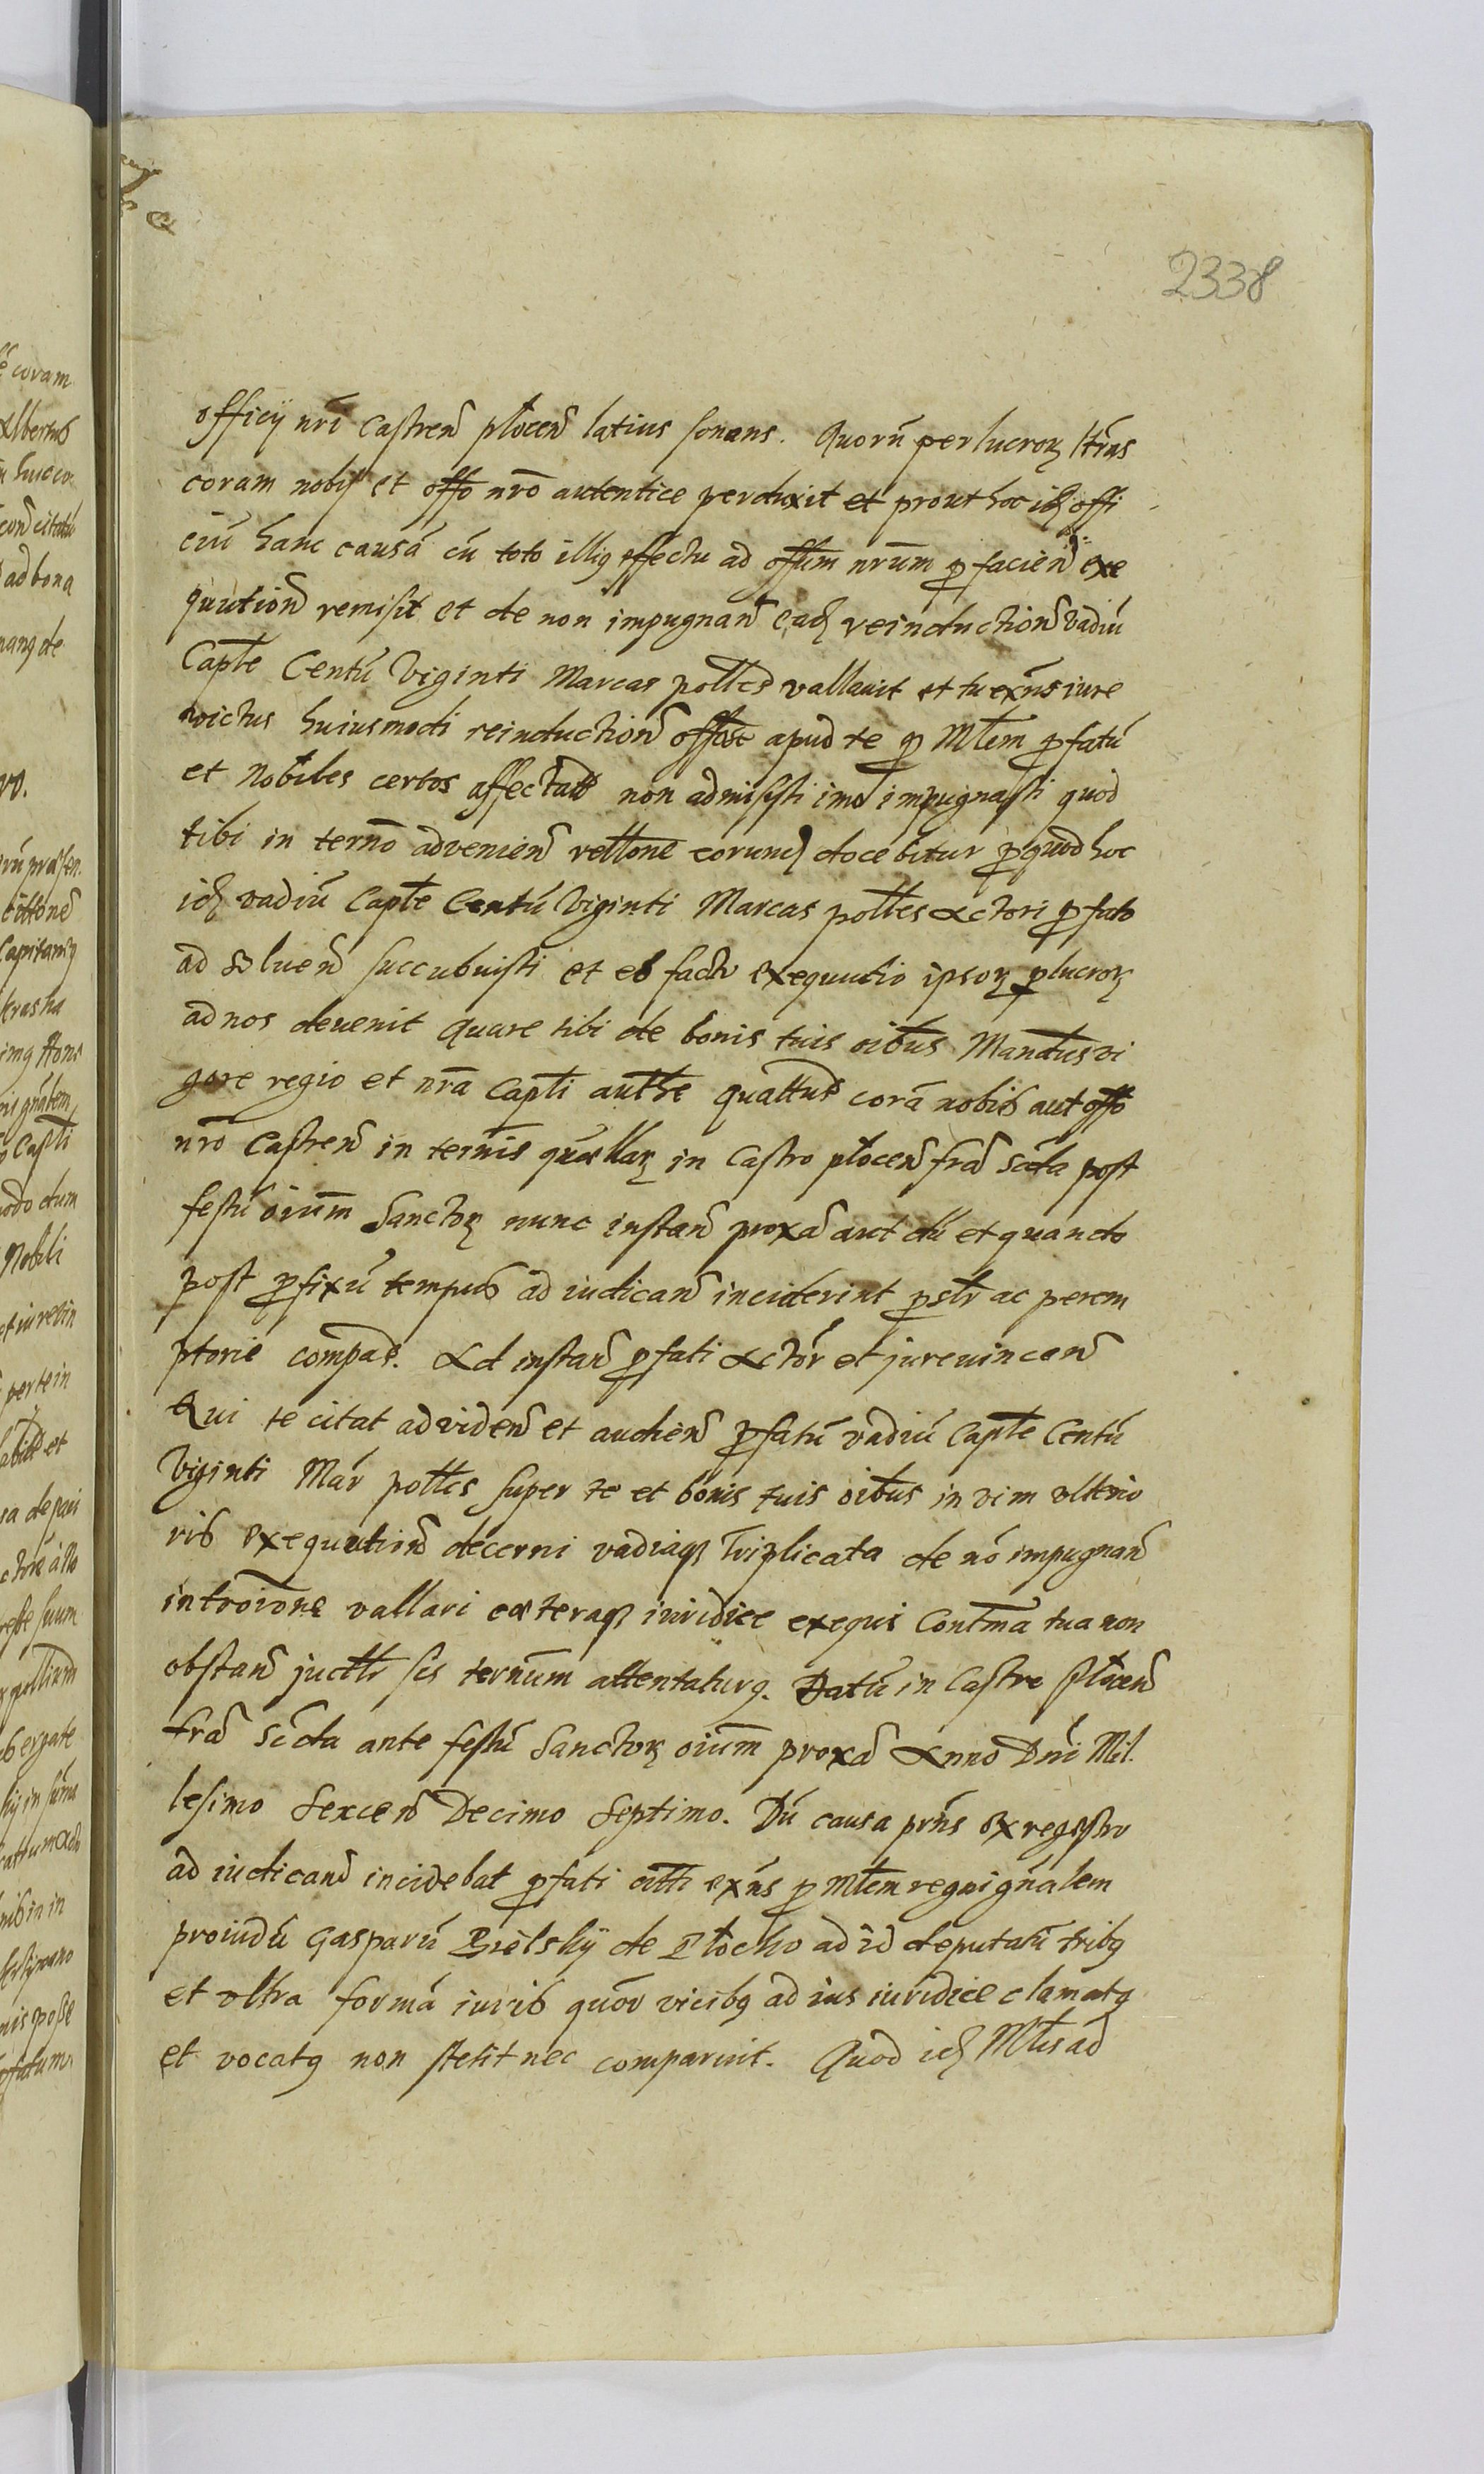 2338
officÿ nrī Castreñ plöceñ latius sonans. Quorū perlucroꝝ ltras
coram nobÿ et offo nrō autentice perduxit et prout hoc id offi
ciū hanc causā cū toto illiꝰ effectu ad offum nrum p facieñ exe
quutioñ remisit et de non impugnañ eađ reinductioñ vadiū
Caplte Centū Viginti Marcas polles vallavit et tu exñs iure
victus huiusmodi reinductioñ offose apud te p Mlem pfatū
et Nobiles certos affectatt non admisisti imo impugnasti quod
tibi in termō advenieñ rellone eorunđ docebitur p quod hoc
iđ vadiū Caplte Centū Viginti Marcas polles Actori pfato
ad solueñ succubuisti et eo facto exequutio ipsoꝝ plucroꝝ
ad nos devenit Quare tibi de bonis tuis oibus Mandtus vi
gore regio et nrā Caplti autthe quattus corā nobis aut offo
nrō Castreñ in termis quællaꝝ in Castro ploceñ fra scđa post
festū oium Sanctoꝝ nunc instañ proxa aut dū et quando
post pfixū tempus ad iudicañ inciderint pslr ac perem
ptorie compas. Ad instañ pfati Actōr et jurevinceñ
Qui te citat ad videñ et audieñ pfatū vadiū Caplte Centū
Viginti Mār polles super te et bonis tuis oibus in vim ulterio
ris exequutioñ decerni vadiaqꝫ Triplicata de nō impugnañ
introione vallari cæteraqꝫ iuridice exequi Contma tua non
obstañ juctlr sis ternum attentaturꝰ. Datū in Castro Ploceñ
fra Scđa ante festū Sanctoꝝ oium proxa Anno Dni Mil.
lesimo Sexceñ Decimo Septimo. Dū causa prñs ex regestro
ad iudicand incidebat pfati citti exñs p Mlem regni gñalem
proindū Gasparū Bielskÿ de Plocko ad id deputatū tribꝰ
et ultra formā iuris quōr vicibꝰ ad ius iuridice clamatꝰ
et vocatꝰ non stetit nec comparuit. Quod iđ Mlis ad